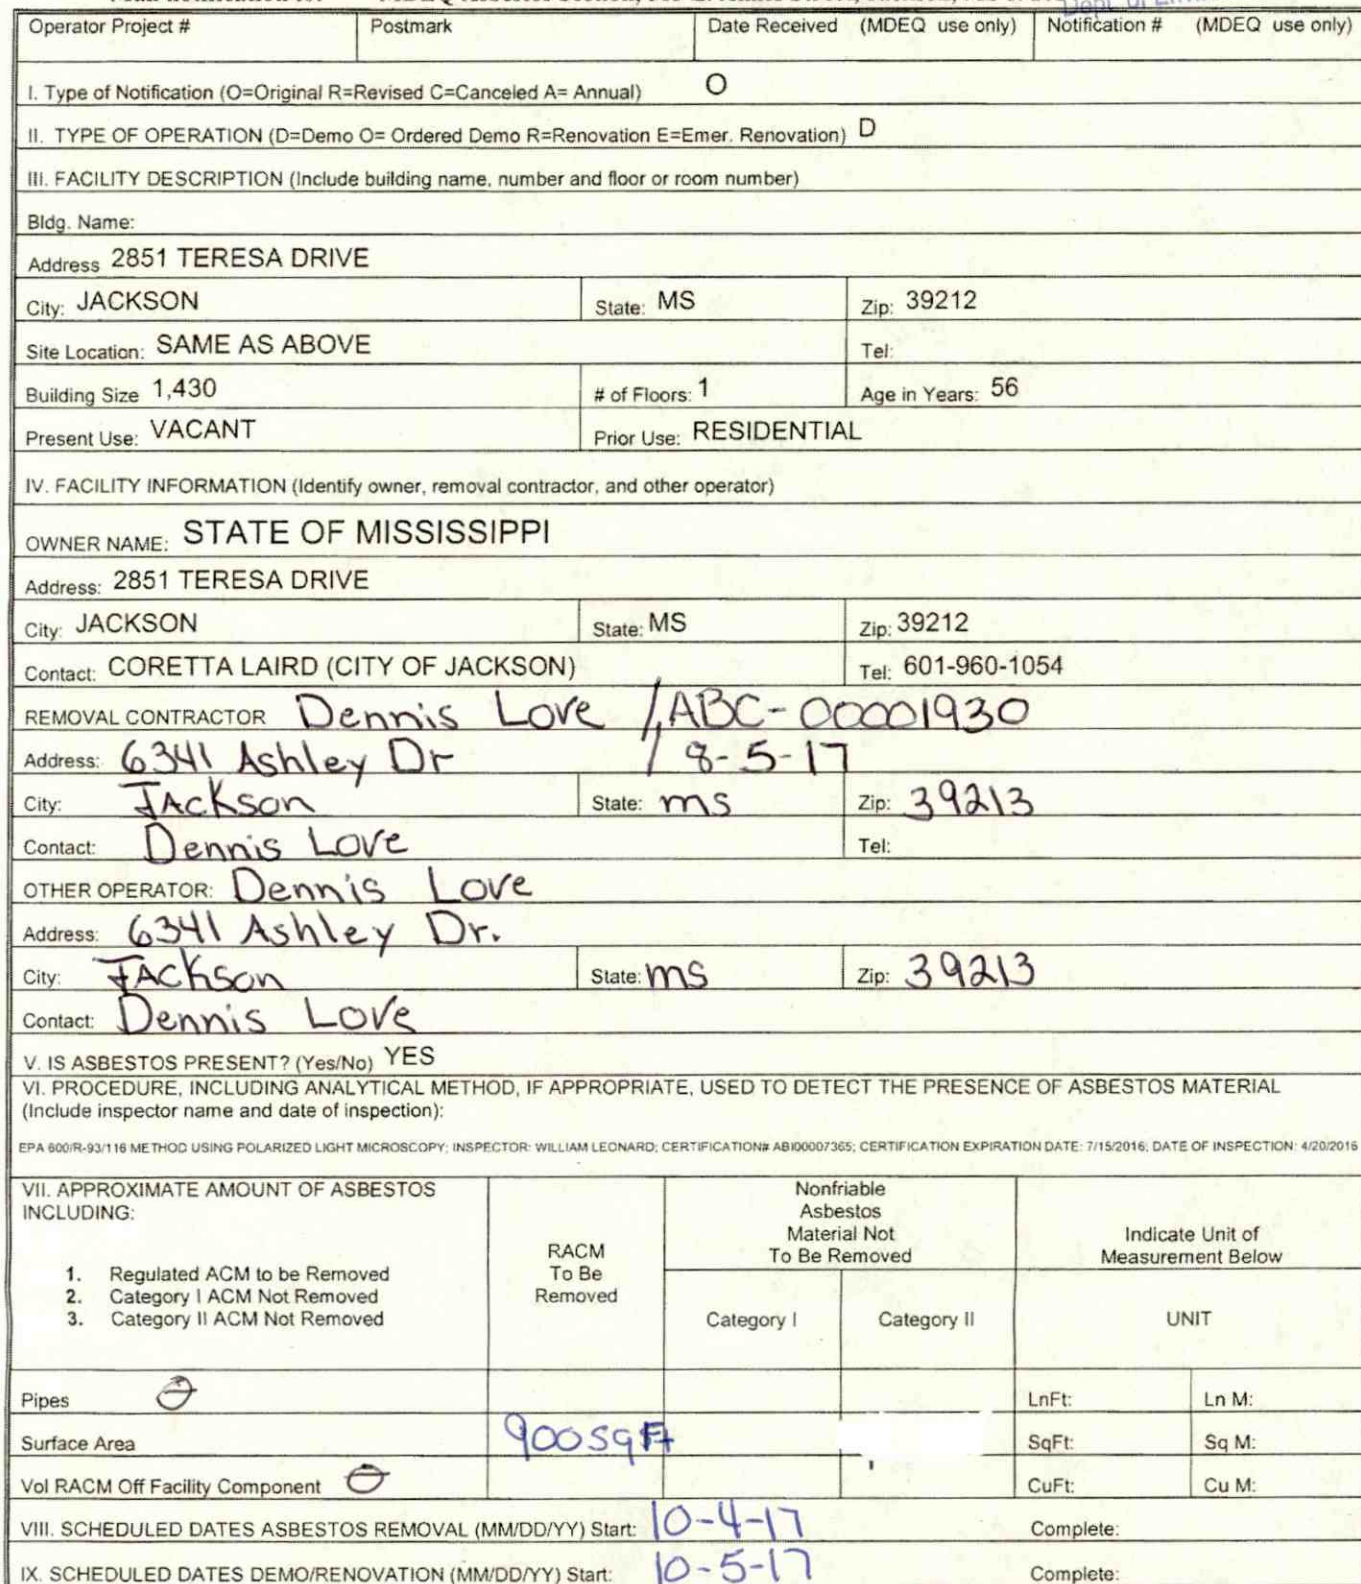 Operator Project # Postmark Date Received (MDEQ use only) Notification # (MDEQ use only)
I. Type of Notification (O=Original R=Revised C=Canceled A= Annual) O
II. TYPE OF OPERATION (D=Demo O= Ordered Demo R=Renovation E=Emer. Renovation) D
III. FACILITY DESCRIPTION (Include building name, number and floor or room number)
Bldg. Name:
Address 2851 TERESA DRIVE
City: JACKSON State: MS Zip: 39212
Site Location: SAME AS ABOVE Tel:
Building Size 1,430 # of Floors: 1 Age in Years: 56
Present Use: VACANT Prior Use: RESIDENTIAL
IV. FACILITY INFORMATION (Identify owner, removal contractor, and other operator)
OWNER NAME: STATE OF MISSISSIPPI
Address: 2851 TERESA DRIVE
City: JACKSON State: MS Zip: 39212
Contact: CORETTA LAIRD (CITY OF JACKSON) Tel: 601-960-1054
REMOVAL CONTRACTOR Dennis Love / ABC-00001930
Address: 6341 Ashley Dr / 8-5-17
City: JAckson State: ms Zip: 39213
Contact: Dennis Love Tel:
OTHER OPERATOR: Dennis Love
Address: 6341 Ashley Dr.
City: JAckson State: ms Zip: 39213
Contact: Dennis Love
V. IS ASBESTOS PRESENT? (Yes/No) YES
VI. PROCEDURE, INCLUDING ANALYTICAL METHOD, IF APPROPRIATE, USED TO DETECT THE PRESENCE OF ASBESTOS MATERIAL
(Include inspector name and date of inspection):
EPA 600/R-93/116 METHOD USING POLARIZED LIGHT MICROSCOPY; INSPECTOR: WILLIAM LEONARD; CERTIFICATION# ABI00007365; CERTIFICATION EXPIRATION DATE: 7/15/2016; DATE OF INSPECTION: 4/20/2016
VII. APPROXIMATE AMOUNT OF ASBESTOS
INCLUDING:
1. Regulated ACM to be Removed
2. Category I ACM Not Removed
3. Category II ACM Not Removed
RACM
To Be
Removed
Nonfriable
Asbestos
Material Not
To Be Removed
Category I Category II
Indicate Unit of
Measurement Below
UNIT
Pipes LnFt: Ln M:
Surface Area 900 sq Ft SqFt: Sq M:
Vol RACM Off Facility Component CuFt: Cu M:
VIII. SCHEDULED DATES ASBESTOS REMOVAL (MM/DD/YY) Start: 10-4-17 Complete:
IX. SCHEDULED DATES DEMO/RENOVATION (MM/DD/YY) Start: 10-5-17 Complete: